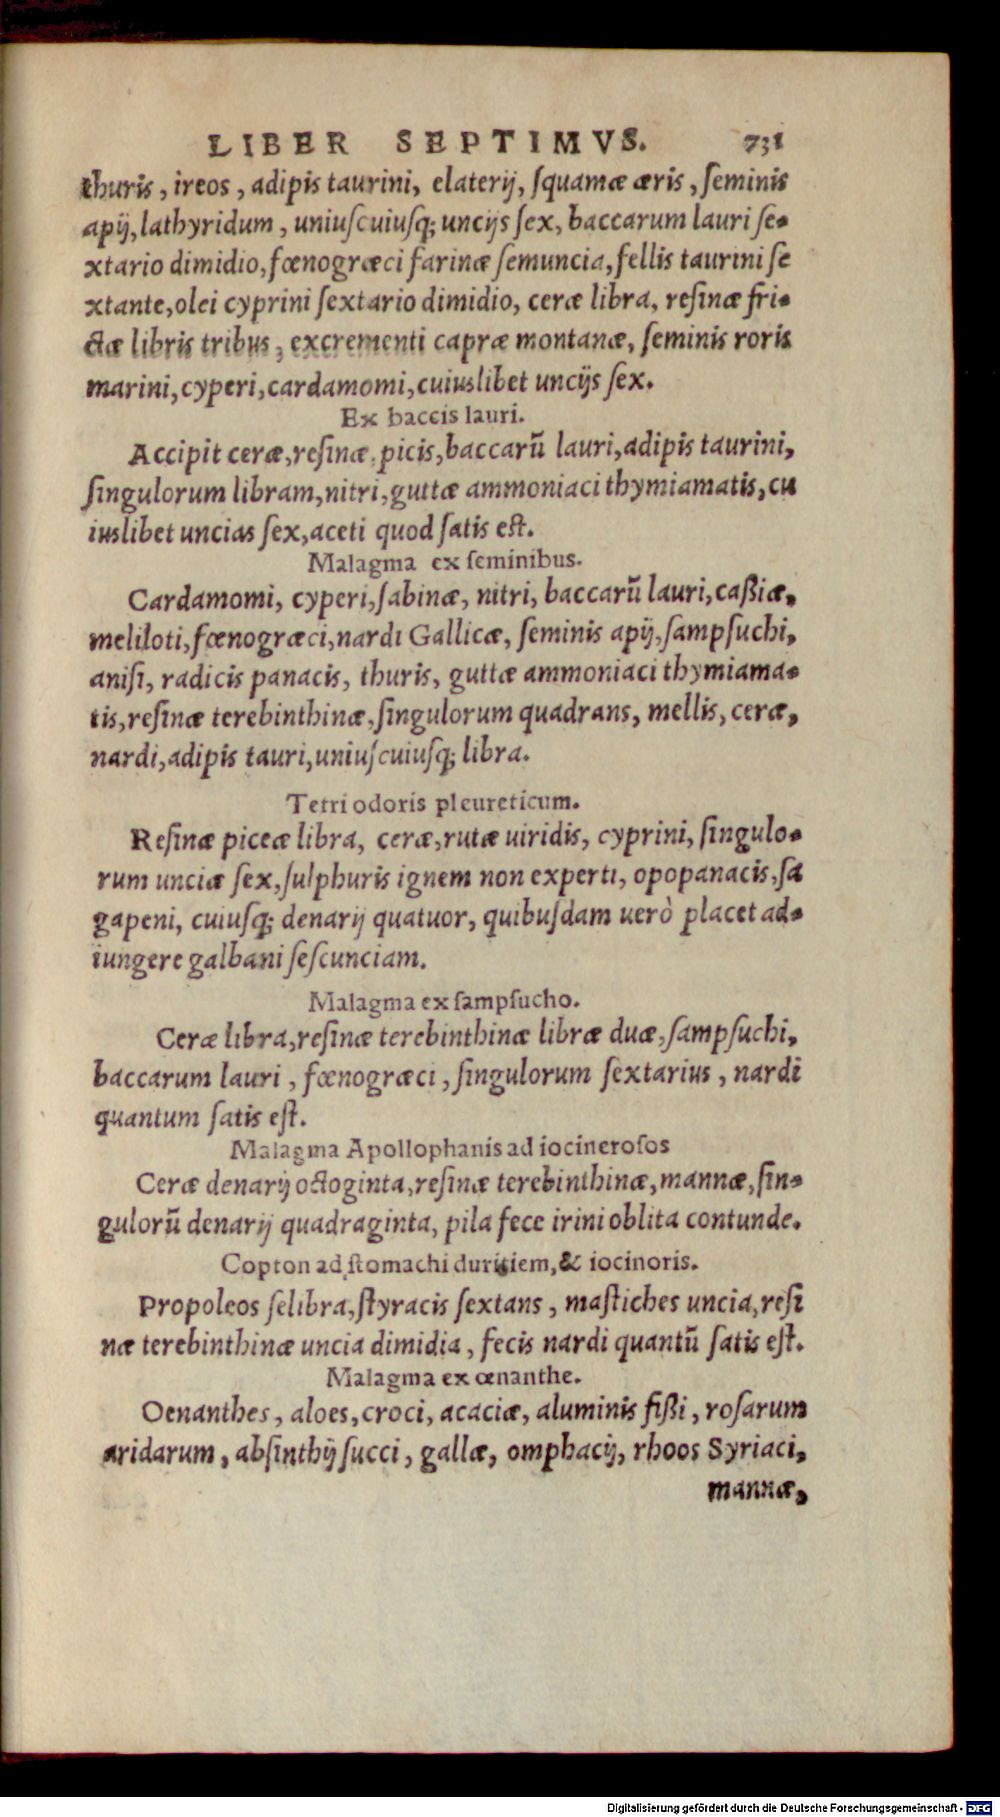 LIBER SEPTIMVS. 731
thuris, ireos, adipis taurini, elaterij, ſquamæ æris, ſeminis
apij, lathyridum, uniuſcuiuſq; uncijs ſex, baccarum lauri ſe-
xtario dimidio, fœnogræci farinæ ſemuncia, fellis taurini ſe
xtante, olei cyprini ſextario dimidio, ceræ libra, reſinæ fri-
ctæ libris tribus, excrementi capræ montanæ, ſeminis roris
marini, cyperi, cardamomi, cuiuslibet uncijs ſex.
Ex baccis lauri.
Accipit ceræ, reſinæ, picis, baccarũ lauri, adipis taurini,
ſingulorum libram, nitri, guttæ ammoniaci thymiamatis, cu
iuslibet uncias ſex, aceti quod ſatis eſt.
Malagma ex ſeminibus.
Cardamomi, cyperi, ſabinæ, nitri, baccarũ lauri, caßiæ,
meliloti, fœnogræci, nardi Gallicæ, ſeminis apij, ſampſuchi,
aniſi, radicis panacis, thuris, guttæ ammoniaci thymiama-
tis, reſinæ terebinthinæ, ſingulorum quadrans, mellis, ceræ,
nardi, adipis tauri, uniuſcuiuſq; libra.
Tetri odoris pleureticum.
Reſinæ piceæ libra, ceræ, rutæ uiridis, cyprini, ſingulo-
rum unciæ ſex, ſulphuris ignem non experti, opopanacis, ſa
gapeni, cuiuſq; denarij quatuor, quibuſdam uerò placet ad-
iungere galbani ſeſcunciam.
Malagma ex ſampſucho.
Ceræ libra, reſinæ terebinthinæ libræ duæ, ſampſuchi,
baccarum lauri, fœnogræci, ſingulorum ſextarius, nardi
quantum ſatis eſt.
Malagma Apollophanis ad iocineroſos
Ceræ denarij octoginta, reſinæ terebinthinæ, mannæ, ſin-
gulorũ denarij quadraginta, pila fece irini oblita contunde.
Copton ad ſtomachi duritiem, & iocinoris.
Propoleos ſelibra, ſtyracis ſextans, maſtiches uncia, reſi
næ terebinthinæ uncia dimidia, fecis nardi quantũ ſatis eſt.
Malagma ex œnanthe.
Oenanthes, aloes, croci, acaciæ, aluminis fißi, roſarum
aridarum, abſinthij ſucci, gallæ, omphacij, rhoos Syriaci,
mannæ,
Digitalisierung gefördert durch die Deutsche Forschungsgemeinschaft - DFG